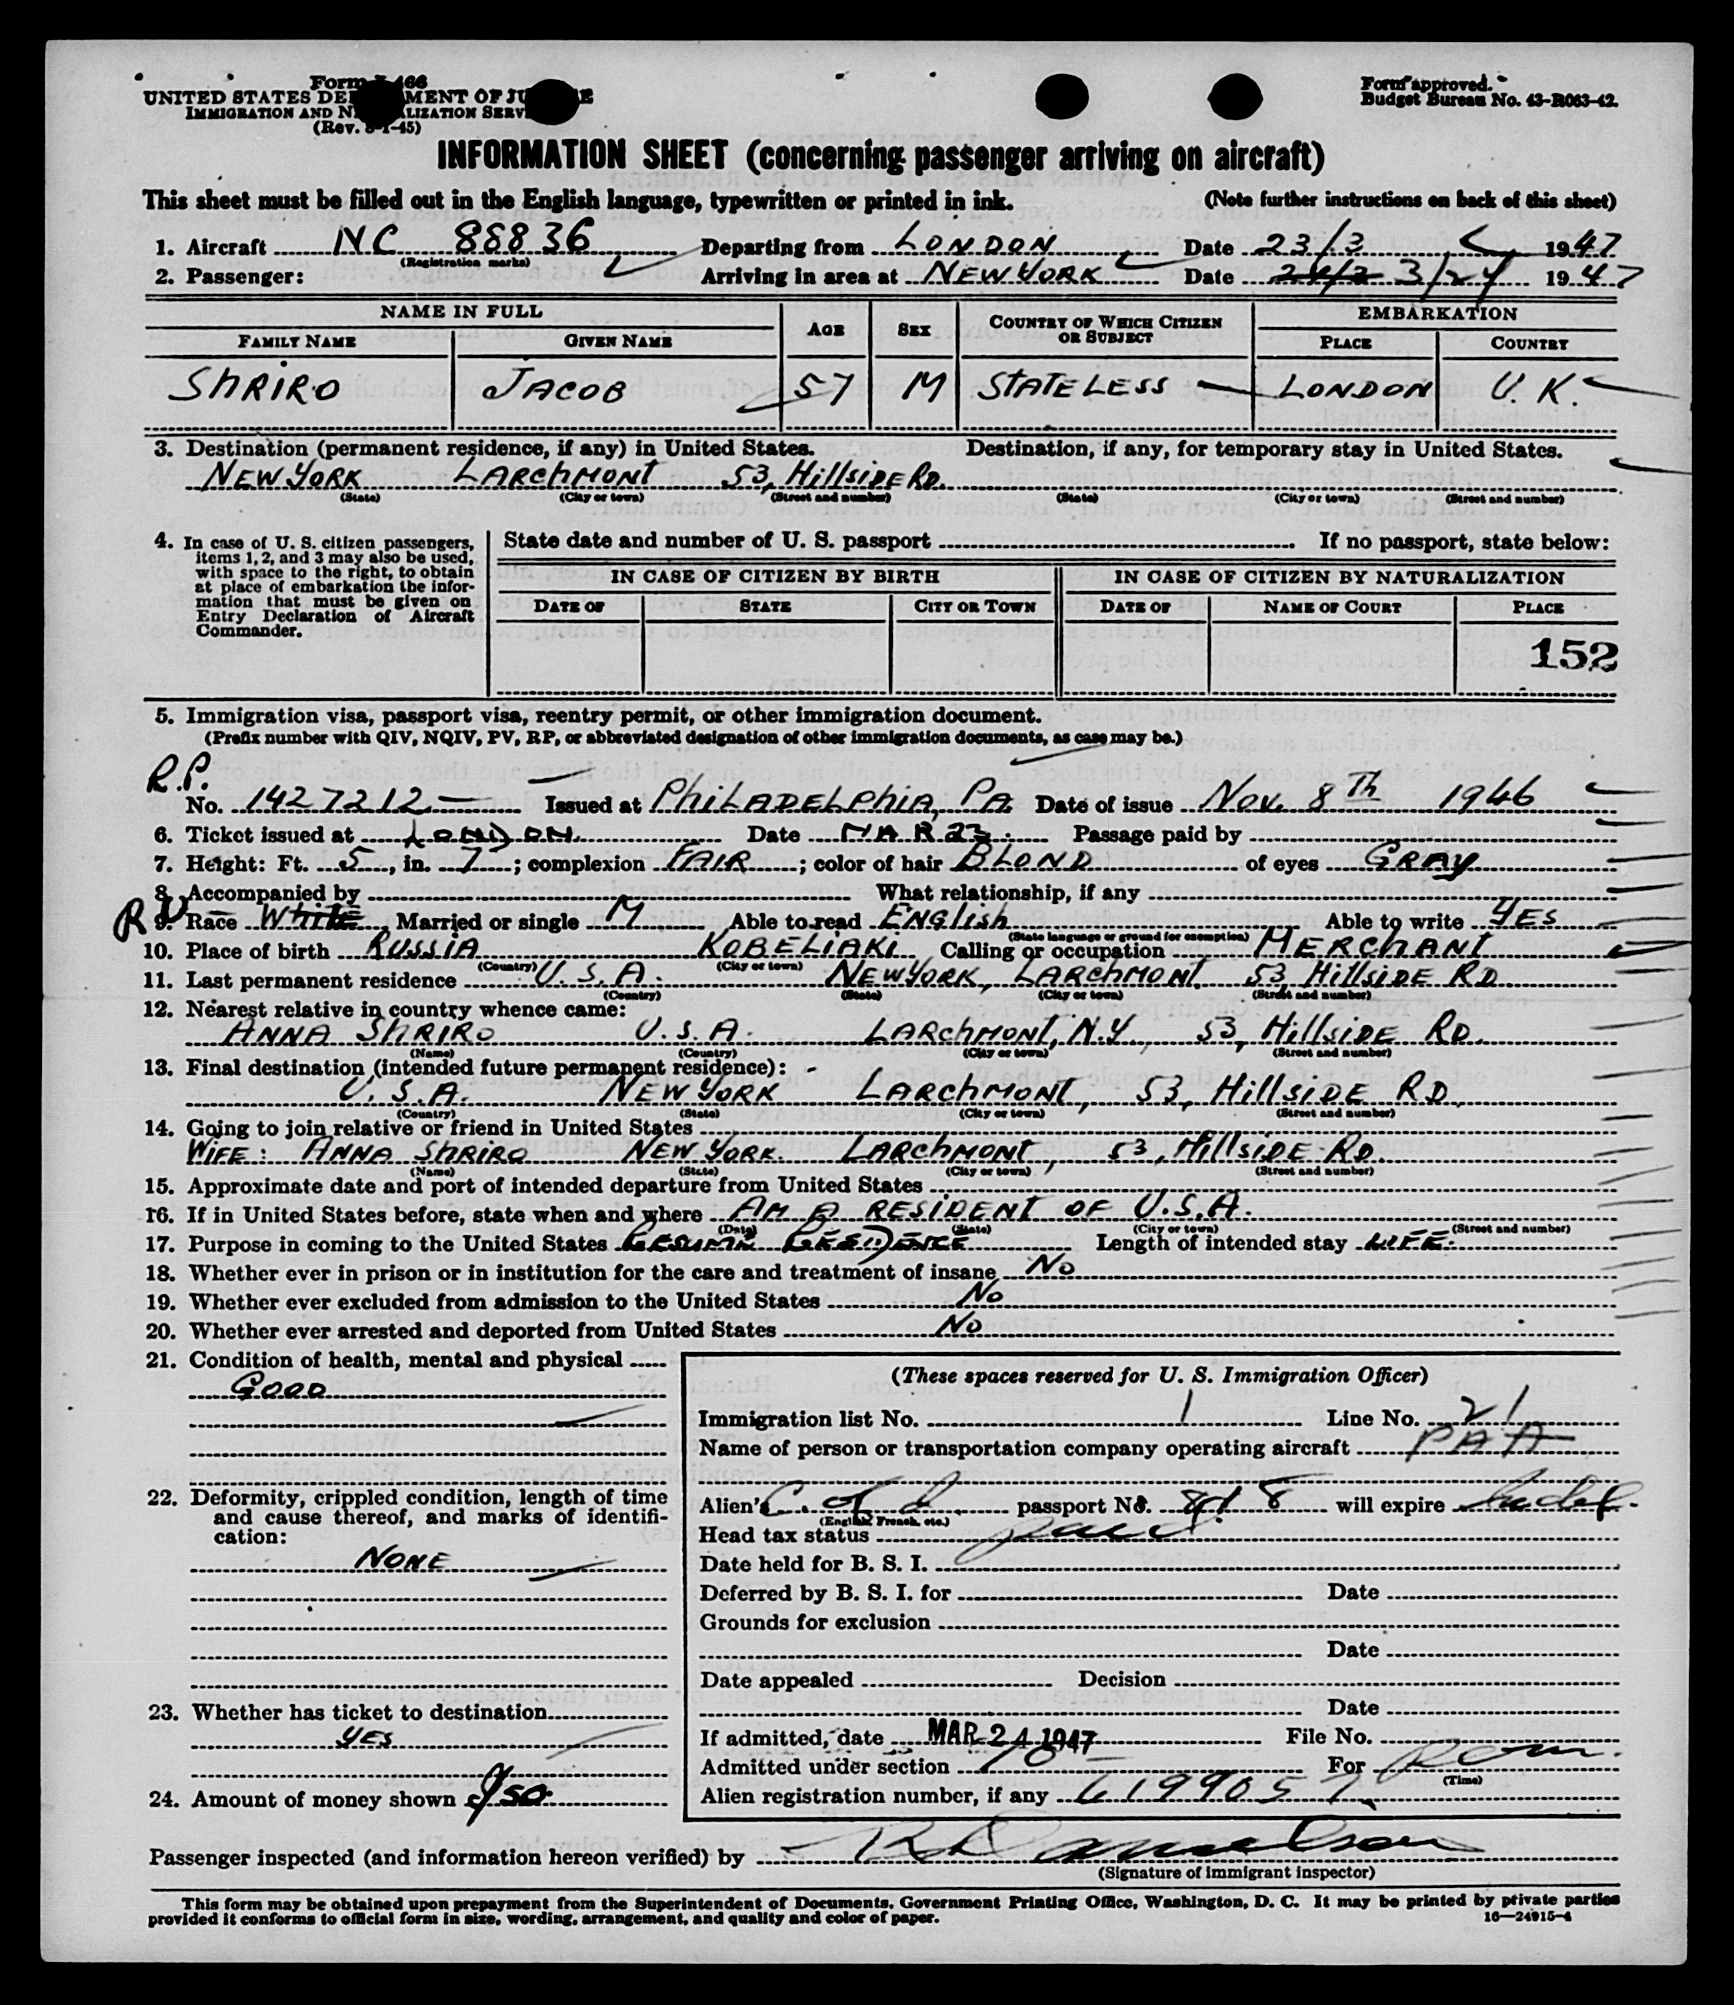 Form I-466
UNITED STATES DEPARTMENT OF JUSTICE
IMMIGRATION AND NATURALIZATION SERVICE
(Rev. 8-1-45)
Form approved.
Budget Bureau No. 43-R063-42.
INFORMATION SHEET (concerning passenger arriving on aircraft)
This sheet must be filled out in the English language, typewritten or printed in ink. (Note further instructions on back of this sheet)
1. Aircraft NC 88836 Departing from LONDON Date 23/3 1947
(Registration marks)
2. Passenger: Arriving in area at NEW YORK Date 24/3 3/24 1947
NAME IN FULL AGE SEX COUNTRY OF WHICH CITIZEN OR SUBJECT EMBARKATION
FAMILY NAME GIVEN NAME PLACE COUNTRY
SHRIRO JACOB 57 M STATELESS LONDON U.K.
3. Destination (permanent residence, if any) in United States. Destination, if any, for temporary stay in United States.
NEW YORK LARCHMONT 53, HILLSIDE RD.
(State) (City or town) (Street and number) (State) (City or town) (Street and number)
4. In case of U. S. citizen passengers, items 1, 2, and 3 may also be used, with space to the right, to obtain at place of embarkation the information that must be given on Entry Declaration of Aircraft Commander.
State date and number of U. S. passport If no passport, state below:
IN CASE OF CITIZEN BY BIRTH IN CASE OF CITIZEN BY NATURALIZATION
DATE OF STATE CITY OR TOWN DATE OF NAME OF COURT PLACE
152
5. Immigration visa, passport visa, reentry permit, or other immigration document.
(Prefix number with QIV, NQIV, PV, RP, or abbreviated designation of other immigration documents, as case may be.)
R.P.
No. 1427212 Issued at PHILADELPHIA, PA Date of issue NOV. 8TH 1946
6. Ticket issued at LONDON Date MAR 23 Passage paid by
7. Height: Ft. 5, in. 7; complexion FAIR; color of hair BLOND of eyes GRAY
8. Accompanied by What relationship, if any
9. Race WHITE Married or single M Able to read ENGLISH Able to write YES
(State language or ground for exemption)
10. Place of birth RUSSIA KOBELIAKI Calling or occupation MERCHANT
(Country) (City or town)
11. Last permanent residence U.S.A. NEW YORK, LARCHMONT, 53, HILLSIDE RD
(Country) (State) (City or town) (Street and number)
12. Nearest relative in country whence came:
ANNA SHRIRO U.S.A. LARCHMONT, N.Y., 53, HILLSIDE RD.
(Name) (Country) (City or town) (Street and number)
13. Final destination (intended future permanent residence):
U.S.A. NEW YORK LARCHMONT, 53, HILLSIDE RD.
(Country) (State) (City or town) (Street and number)
14. Going to join relative or friend in United States
WIFE: ANNA SHRIRO NEW YORK. LARCHMONT, 53, HILLSIDE RD.
(Name) (State) (City or town) (Street and number)
15. Approximate date and port of intended departure from United States
16. If in United States before, state when and where AM A RESIDENT OF U.S.A.
(Date) (State) (City or town) (Street and number)
17. Purpose in coming to the United States RESUME RESIDENCE Length of intended stay LIFE.
18. Whether ever in prison or in institution for the care and treatment of insane NO
19. Whether ever excluded from admission to the United States NO
20. Whether ever arrested and deported from United States NO
21. Condition of health, mental and physical
GOOD
22. Deformity, crippled condition, length of time and cause thereof, and marks of identification:
NONE
23. Whether has ticket to destination
YES
24. Amount of money shown $50.
(These spaces reserved for U. S. Immigration Officer)
Immigration list No. 1 Line No. 21
Name of person or transportation company operating aircraft PAA
Alien's passport No. will expire
(English, French, etc.)
Head tax status
Date held for B. S. I.
Deferred by B. S. I. for Date
Grounds for exclusion
Date
Date appealed Decision
Date
If admitted, date MAR 24 1947 File No.
Admitted under section For
(Time)
Alien registration number, if any 6199057
Passenger inspected (and information hereon verified) by
(Signature of immigrant inspector)
This form may be obtained upon prepayment from the Superintendent of Documents, Government Printing Office, Washington, D. C. It may be printed by private parties
provided it conforms to official form in size, wording, arrangement, and quality and color of paper. 16—24915-4